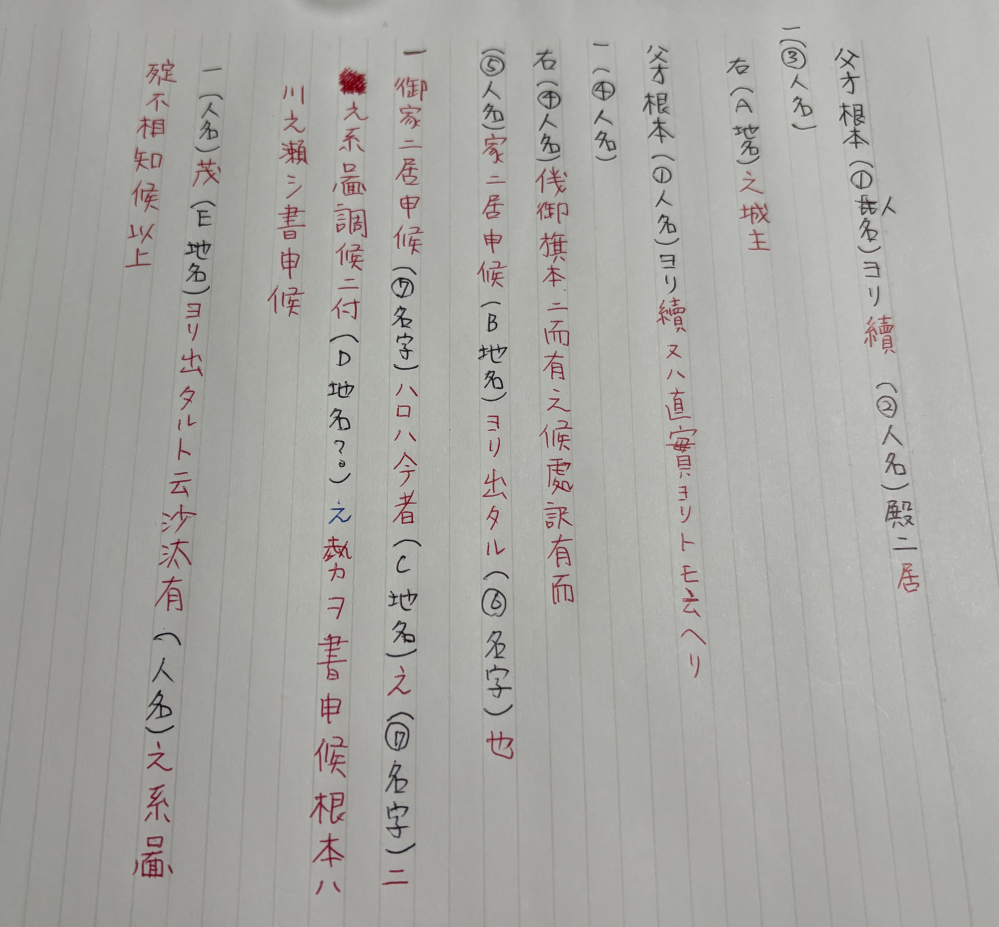 父才根本(①人名)ヨリ續 (②人名)殿ニ居
一(③人名)
右(A地名)之城主
父才根本(①人名)ヨリ續又ハ直實ヨリトモ云ヘリ
一(④人名)
右(④人名)儀御旗本ニ而有之候處訳有而
(⑤人名)家ニ居申候(B地名)ヨリ出タル(⑥名字)也
一御家ニ居申候(⑦名字)ハロハ今者(C地名)え(⑦名字)ニ
え系圖調候ニ付(D地名?。)え勢力ヲ書申候根本ハ
川え瀬シ書申候
一(人名)茂(E地名)ヨリ出タルト云沙汰有(人名)え系圖
聢不相知候以上